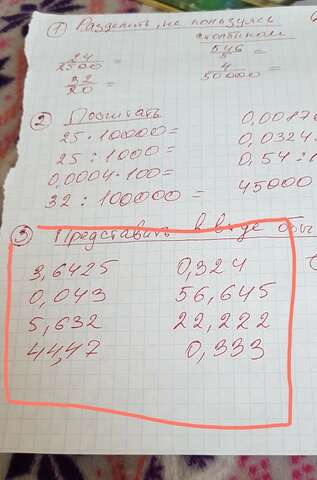 ① Разделить, не пользуясь
столбиком
24/2500 =
546/8 =
32/20 =
4/50000 =
② Посчитать
25 · 10000 =
25 : 1000 =
0,0324
0,0004 · 100 =
0,54 :
32 : 100000 =
45000
③ Представить в виде
3,6425 0,324
0,043 56,645
5,632 22,222
44,47 0,333